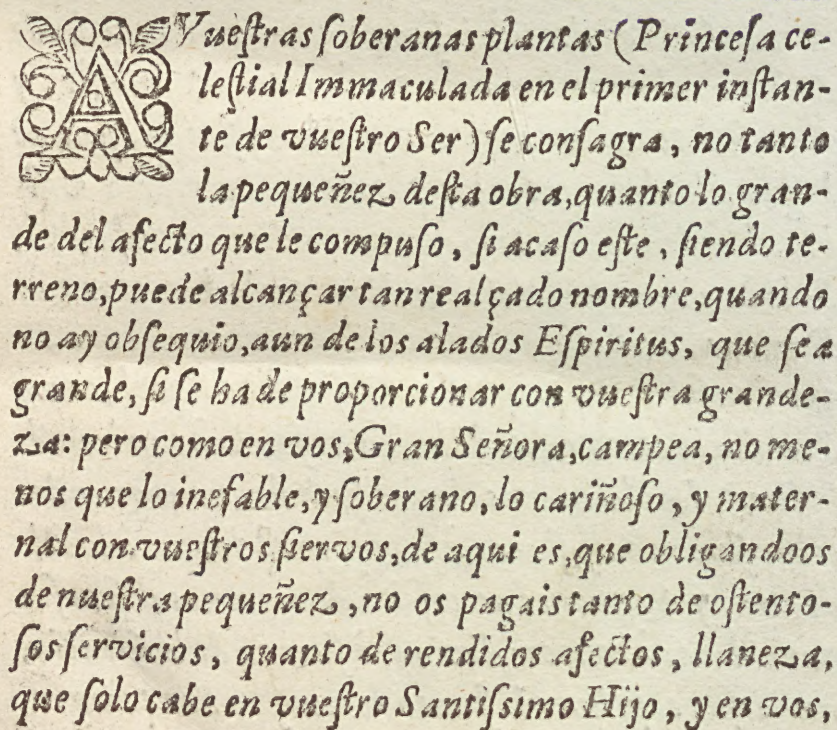 A Vueſtras ſoberanas plantas (Princeſa ce-
leſtial Immaculada en el primer inſtan-
te de vueſtro Ser) ſe conſagra, no tanto
la pequeñez deſta obra, quanto lo gran-
de del afecto que le compuſo, ſi acaſo eſte, ſiendo te-
rreno, puede alcançar tan realçado nombre, quando
no ay obſequio, aun de los alados Eſpiritus, que ſea
grande, ſi ſe ha de proporcionar con vueſtra grande-
za: pero como en vos, Gran Señora, campea, no me-
nos que lo inefable, y ſoberano, lo cariñoſo, y mater-
nal con vueſtros ſiervos, de aqui es, que obligandoos
de nueſtra pequeñez, no os pagais tanto de oſtento-
ſos ſervicios, quanto de rendidos afectos, llaneza,
que ſolo cabe en vueſtro Santiſsimo Hijo, y en vos,